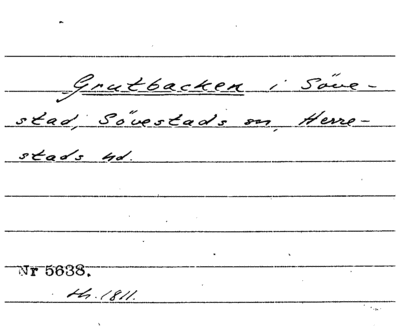 Grutbacken i Söve-
stad, Sövestads sn, Herre-
stads hd.
Nr 5638.
th. 1811.